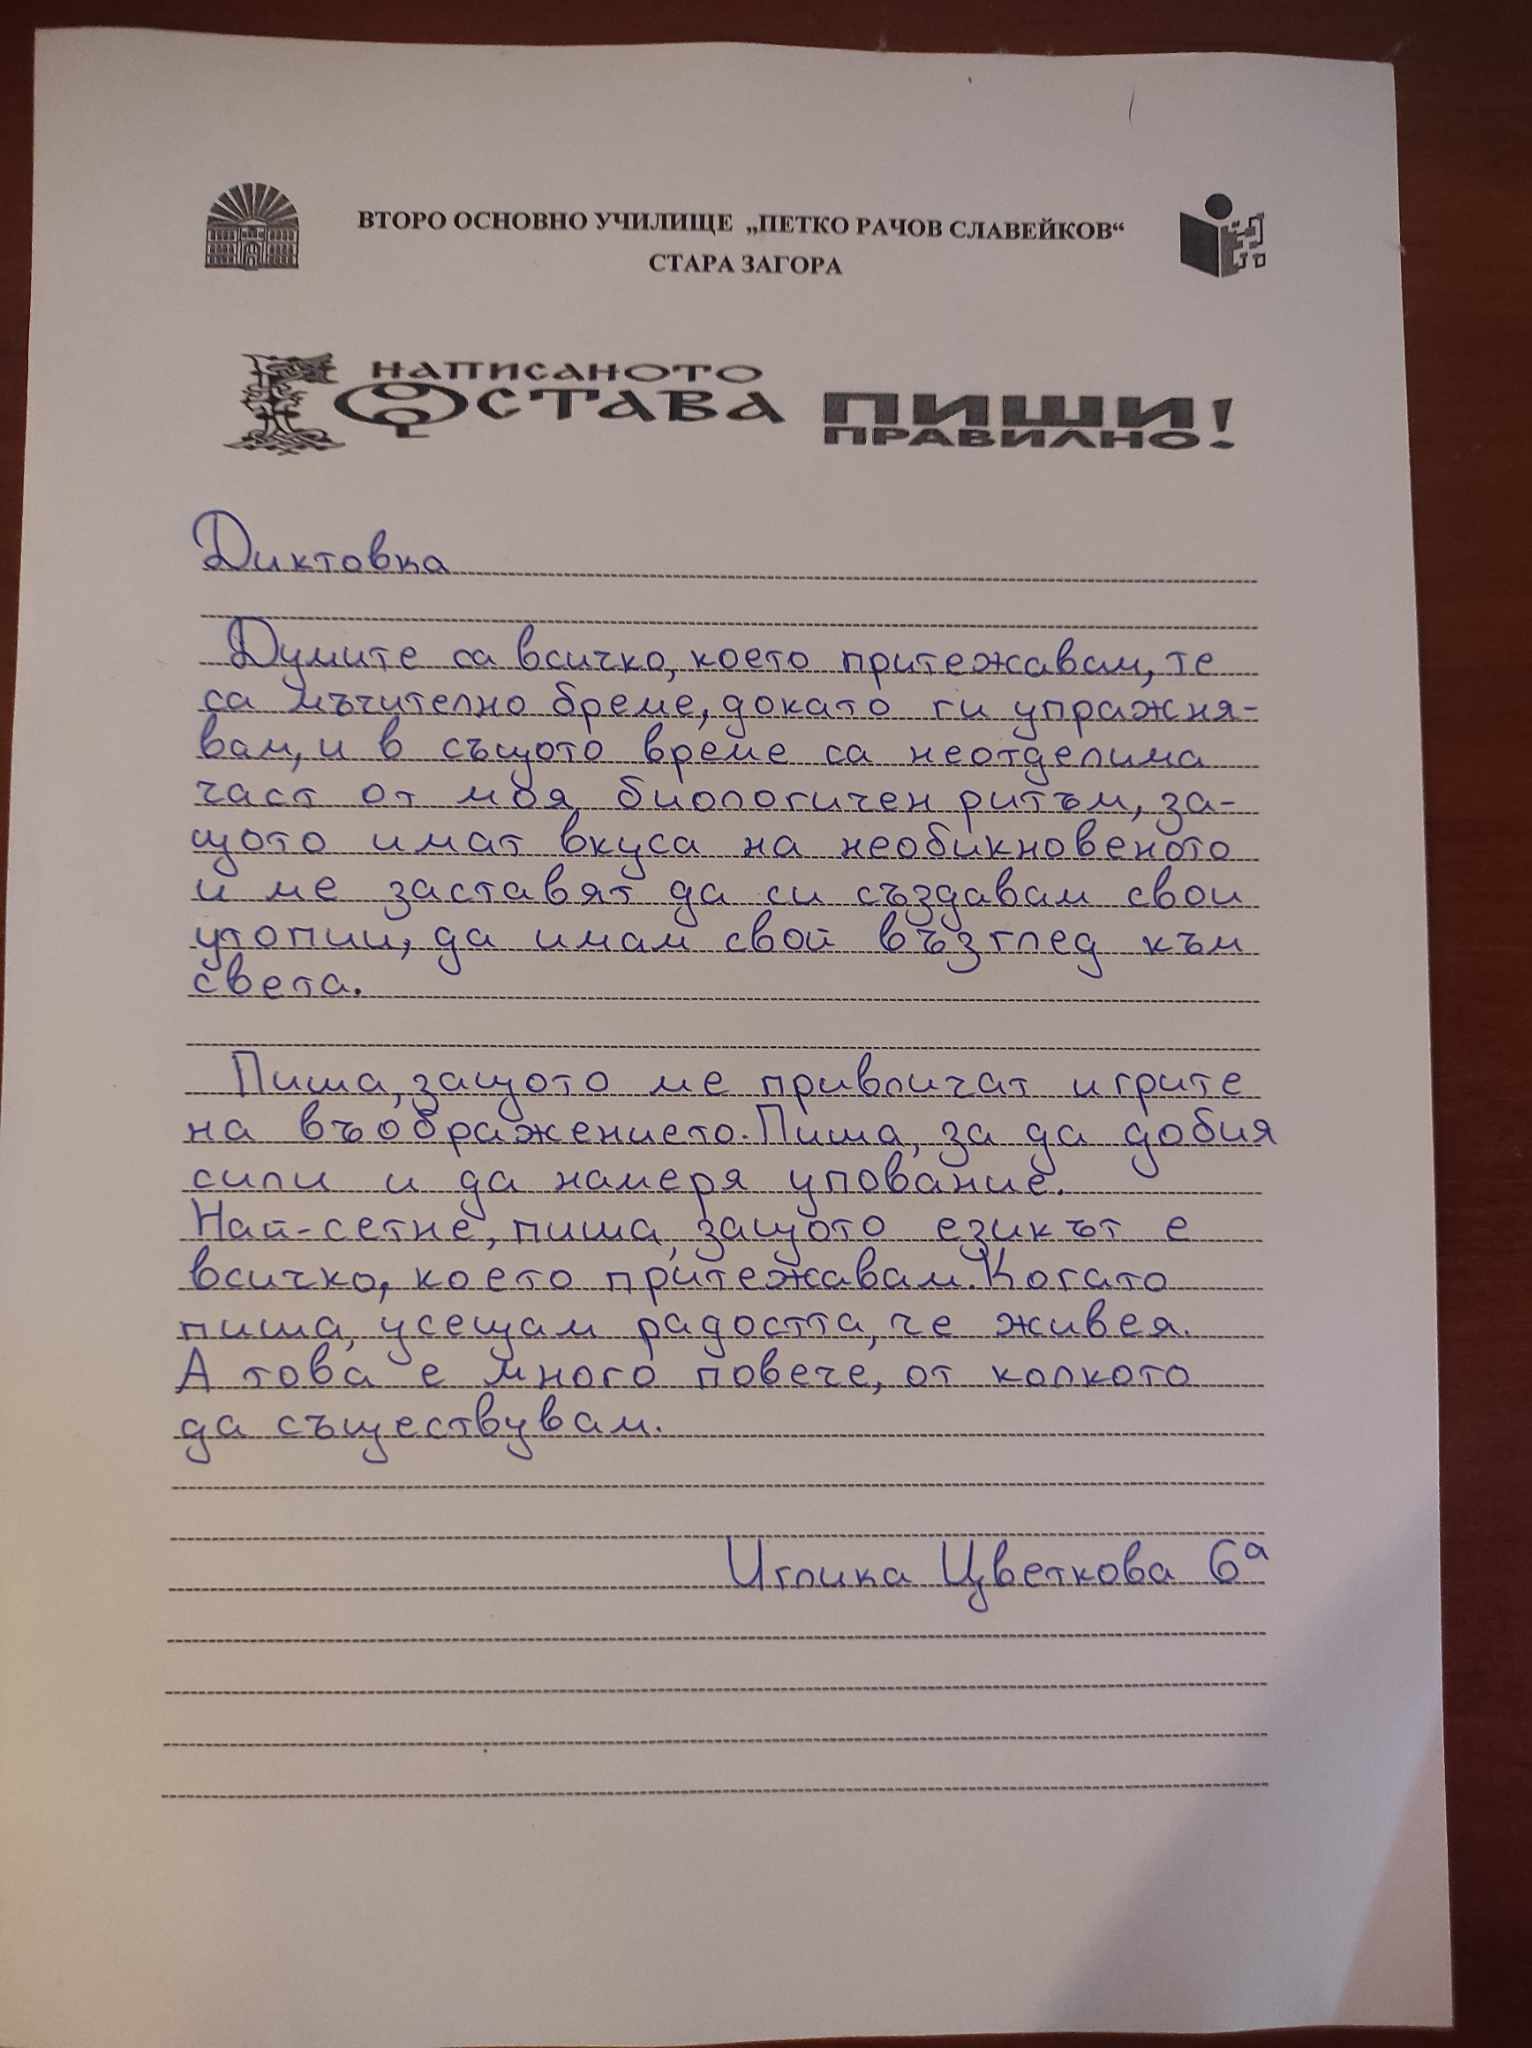 ВТОРО ОСНОВНО УЧИЛИЩЕ „ПЕТКО РАЧОВ СЛАВЕЙКОВ“
СТАРА ЗАГОРА
НАПИСАНОТО
ОСТАВА
ПИШИ
ПРАВИЛНО!
Диктовка
Думите са всичко, което притежавам, те
са мъчително бреме, докато ги упражня-
вам, и в същото време са неотделима
част от моя биологичен ритъм, за-
щото имат вкуса на необикновеното
и ме заставят да си създавам свои
утопии, да имам свой възглед към
света.
Пиша, защото ме привличат игрите
на въображението. Пиша, за да добия
сили и да намеря упование.
Най-сетне, пиша, защото езикът е
всичко, което притежавам. Когато
пиша, усещам радостта, че живея.
А това е много повече, от колкото
да съществувам.
Иглика Цветкова 6а